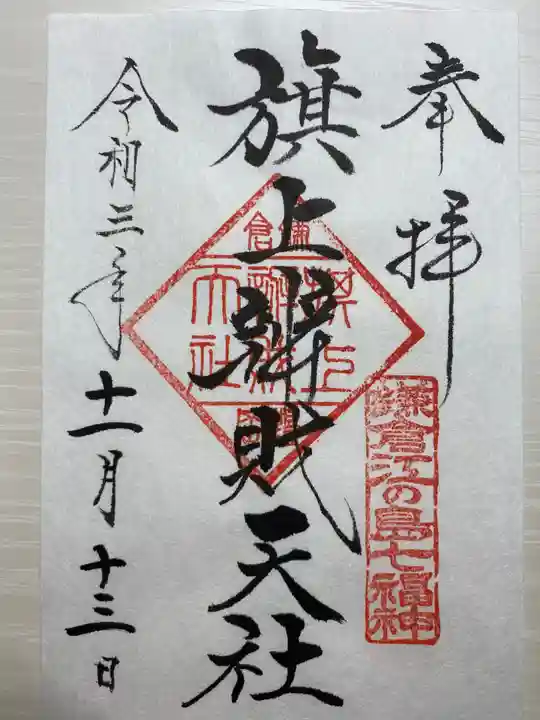 奉拝
鎌倉江の島七福神
旗上辨財天社
鎌倉
旗上
辨財
天社
令和三年十一月十三日